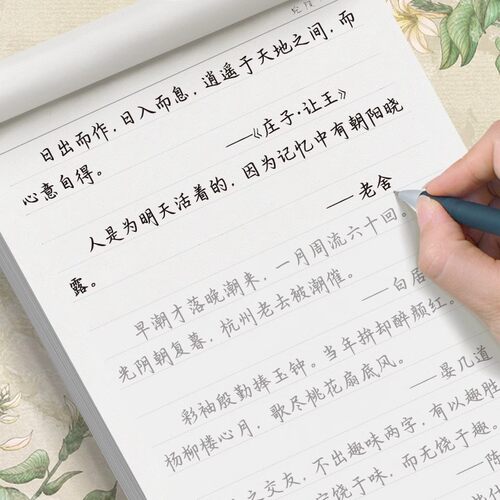 日出而作，日入而息，逍遥于天地之间，而
心意自得。
——《庄子·让王》
人是为明天活着的，因为记忆中有朝阳晓
露。
——老舍
早潮才落晚潮来，一月周流六十回。
光阴朝复暮，杭州老去被潮催。
——白居
彩袖殷勤捧玉钟。当年拚却醉颜红。
杨柳楼心月，歌尽桃花扇底风。
——晏几道
之交友，不出趣味两字，有以趣胜
饶于味，而无饶于趣。
——陈